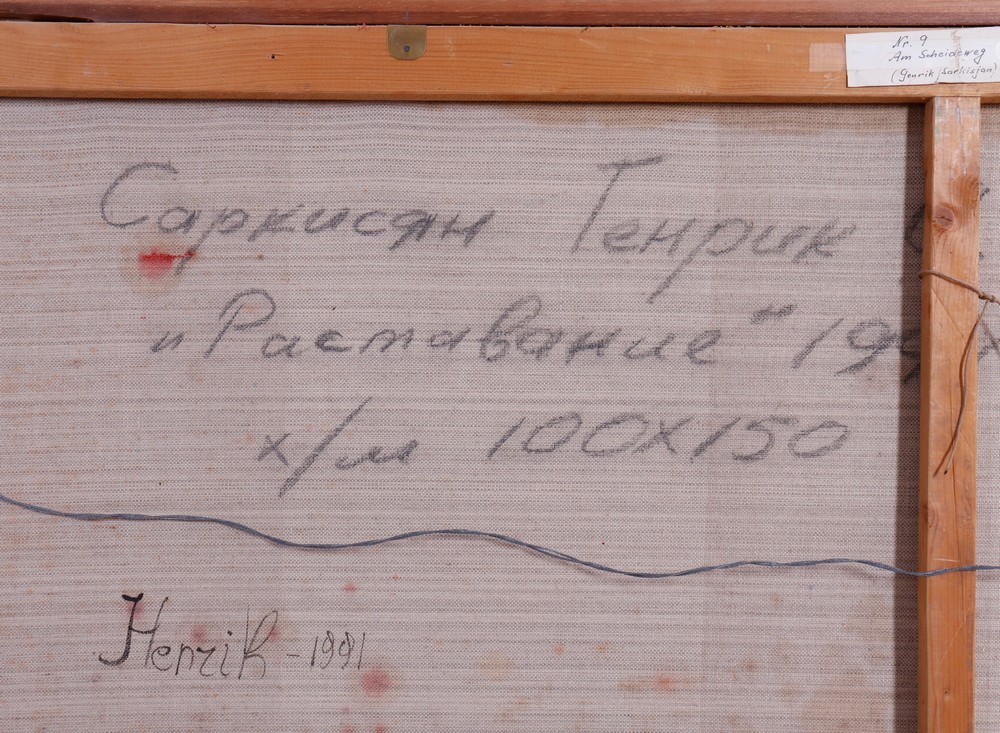 Nr. 9
Am Scheideweg
(Genrik Sarkisjan)
Саркисян Генрик
"Раставание" 199
х/м 100х150
Henrik - 1991